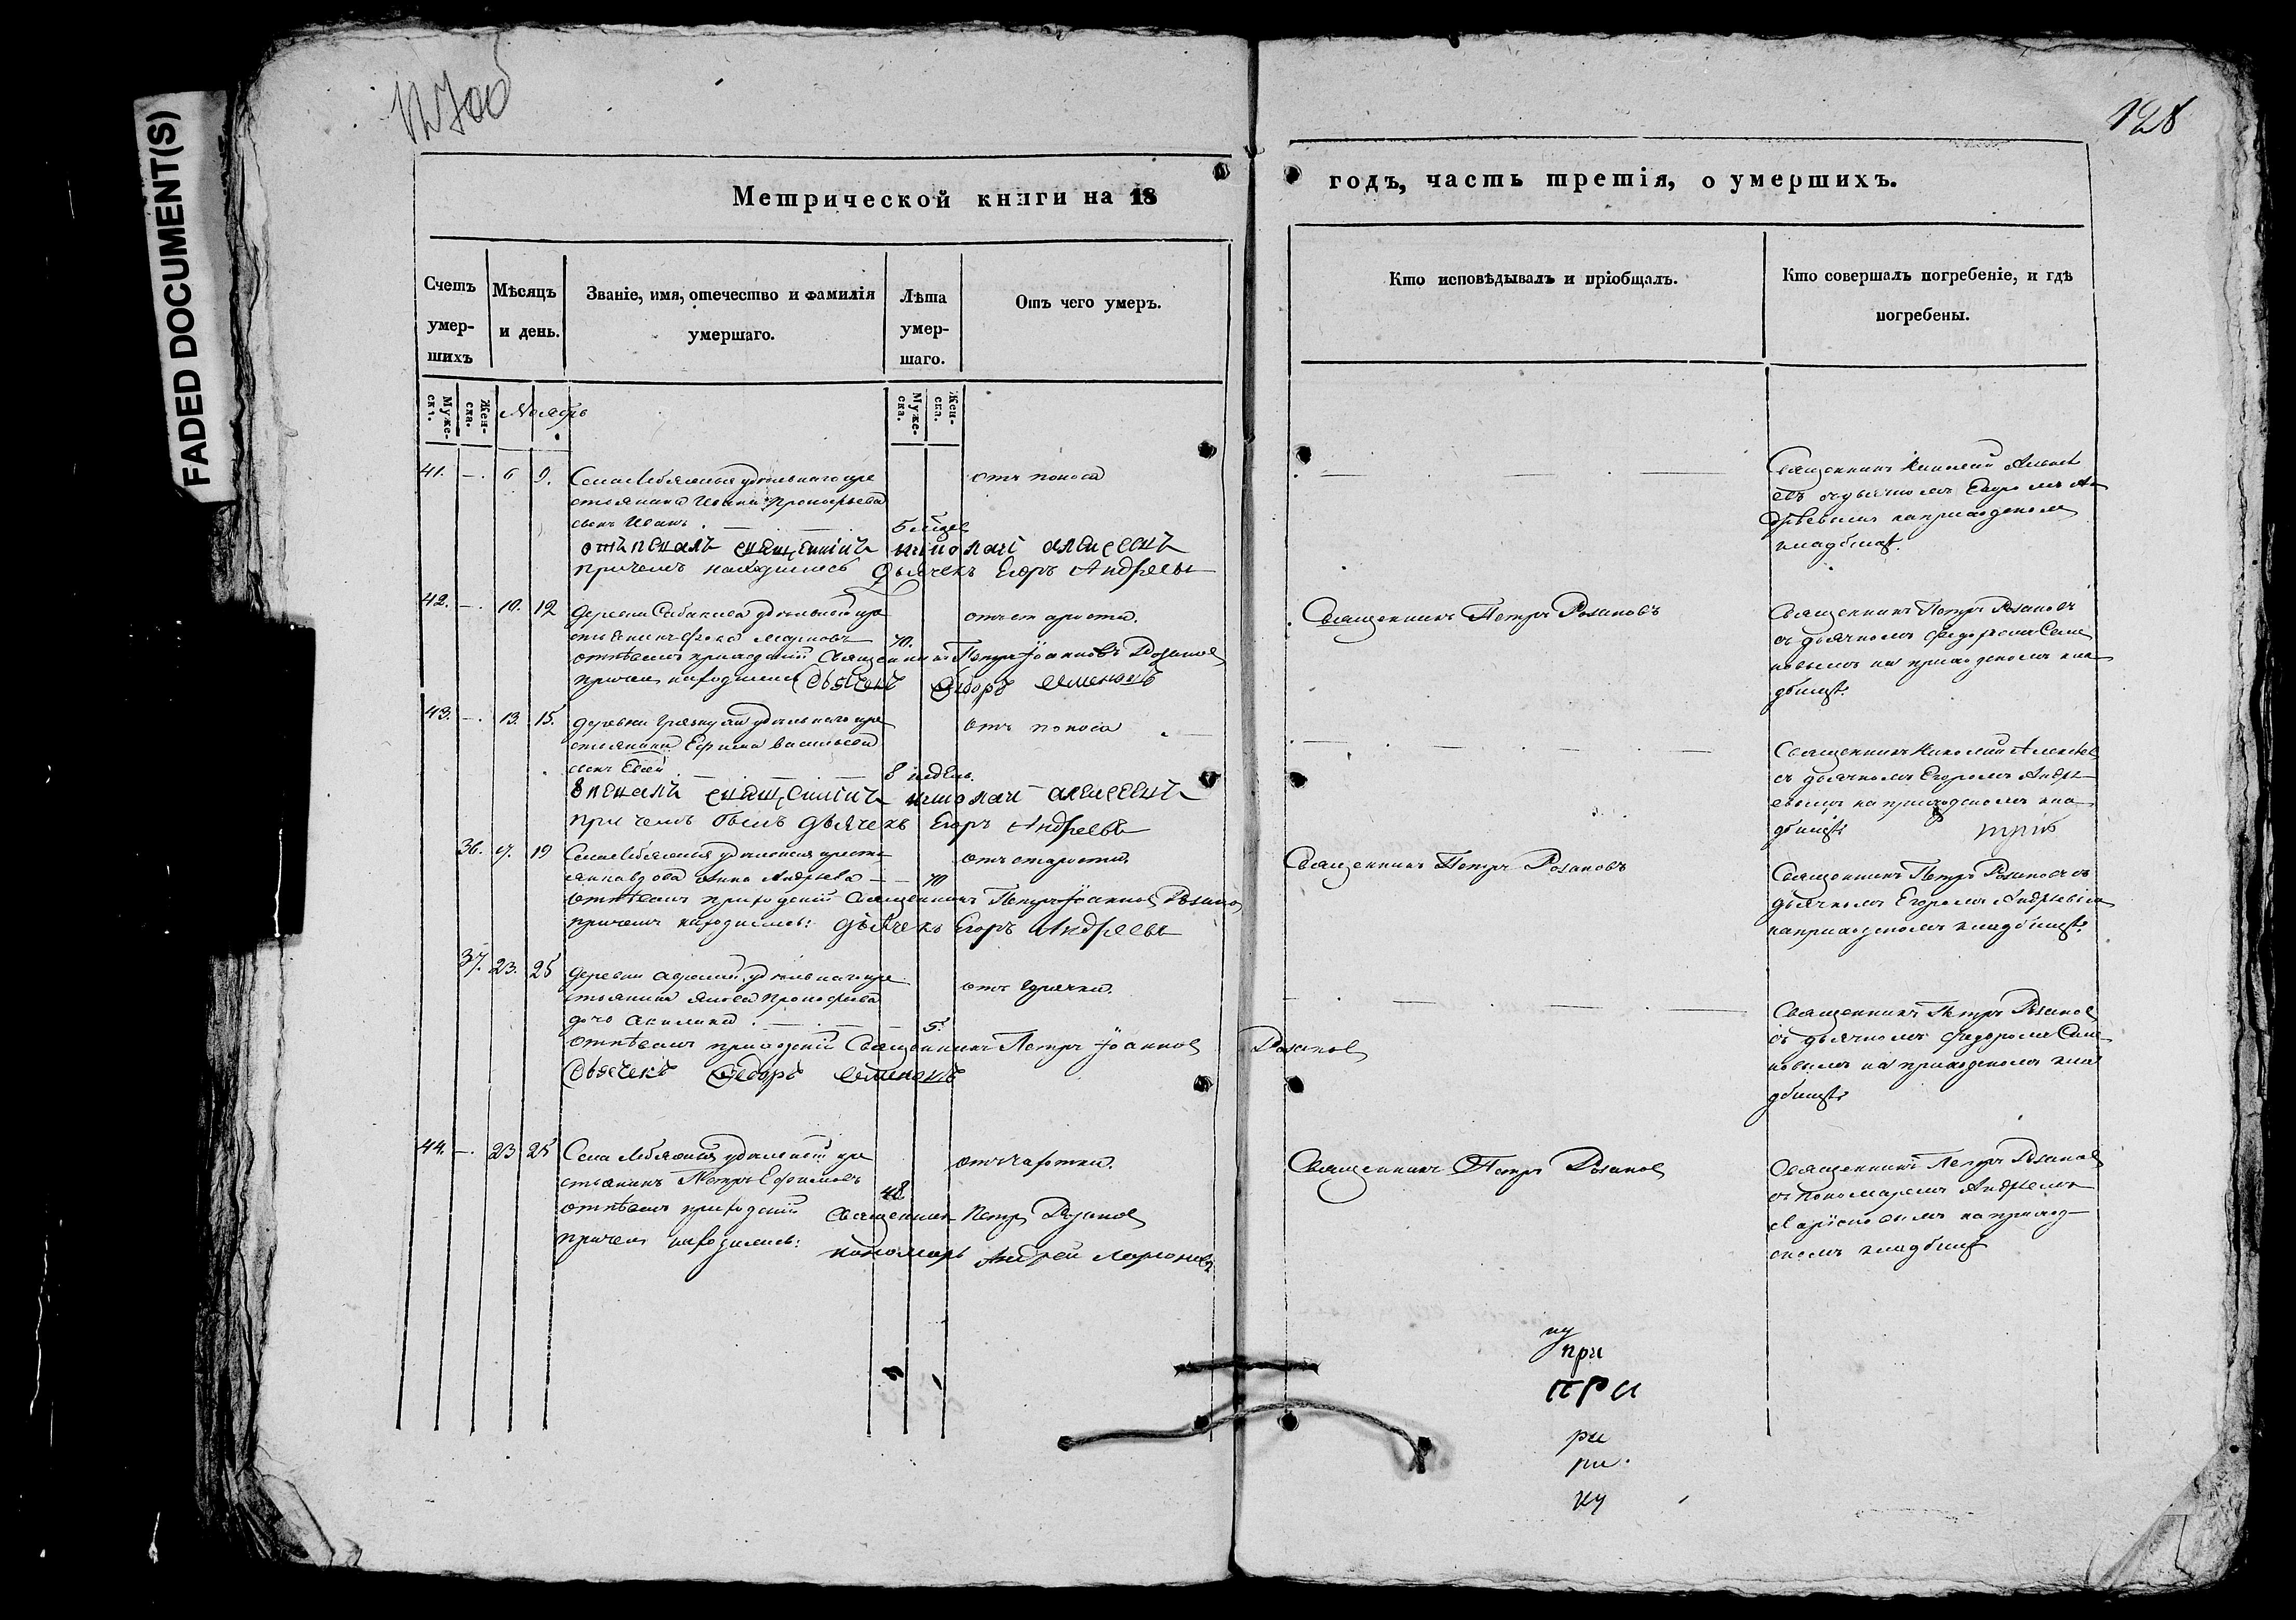 FADED DOCUMENT(S)
128
Метрической книги на 18
годъ, часть третія, о умершихъ.
Счетъ умер-шихъ
Мѣсяцъ и день.
Званіе, имя, отечество и фамилія умершаго.
Лѣта умер-шаго.
Отъ чего умеръ.
Кто исповѣдывалъ и пріобщалъ.
Кто совершалъ погребеніе, и гдѣ погребены.
Муже-ска.
Жен-ска.
Ноябрь
Муже-ска.
Жен-ска.
41. — 6 9. Села удѣльнаго кре
стьянина Ивана Прокофьева
сынъ Иванъ 5 мѣсяц
отъ поноса
отпѣвалъ священникъ николаі алексеевъ
причемъ находились дьячекъ Егоръ Андреевъ
Священникъ Николай Алексе
евъ съ дьячкомъ Егоромъ Ан
дреевымъ на приходскомъ
кладбищѣ.
42. — 10. 12 Деревни удѣльной кре
стьянинъ Марковъ 70.
отъ старости.
отпѣвалъ приходскій Священникъ Петръ Іоанновъ Розановъ
причемъ находились Дьячекъ Ѳедоръ Семеновъ
Священникъ Петръ Розановъ
Священникъ Петръ Розановъ
съ дьячкомъ Федоромъ Семе
новымъ на приходскомъ кла
дбищѣ.
43. — 13. 15. Деревни удѣльнаго кре
стьянина Ефима Васильева
сынъ 8 недѣль.
отъ поноса
священникъ николаі алексеевъ
при чемъ былъ дьячекъ Егоръ Андреевъ
Священникъ Николай Алексеев
съ дьячкомъ Егоромъ Андре
евымъ на приходскомъ кла
дбищѣ
36. 17. 19 Села удѣльная кресть
янка вдова Анна Андреева — 70
отъ старости.
отпѣвалъ приходскій Священникъ Петръ Іоанновъ Розановъ
причемъ находились: дьячекъ Егоръ Андреевъ
Священникъ Петръ Розановъ
Священникъ Петръ Розановъ съ
дьячкомъ Егоромъ Андреевымъ
на приходскомъ кладбищѣ.
37. 23. 25 Деревни удѣльнаго кре
стьянина Якова Прокофьева
дочь Акилина 5.
отъ горячки.
отпѣвалъ приходскій Священникъ Петръ Іоанновъ Розановъ
Дьячекъ Ѳедоръ Семеновъ
Священникъ Петръ Розановъ
съ дьячкомъ Федоромъ Семе
новымъ на приходскомъ кла
дбищѣ
44. — 23 25 Села удѣльной кре
стьянинъ Петръ Ефимовъ 48
отъ чахотки.
отпѣвалъ приходскій Священникъ Петръ Розановъ
причемъ находились: пономарь Андрей Ларионовъ
Священникъ Петръ Розановъ
Священникъ Петръ Розановъ
съ пономаремъ Андреемъ
Ларіоновымъ на приход
скомъ кладбищѣ
при
при
ри
ри
ку